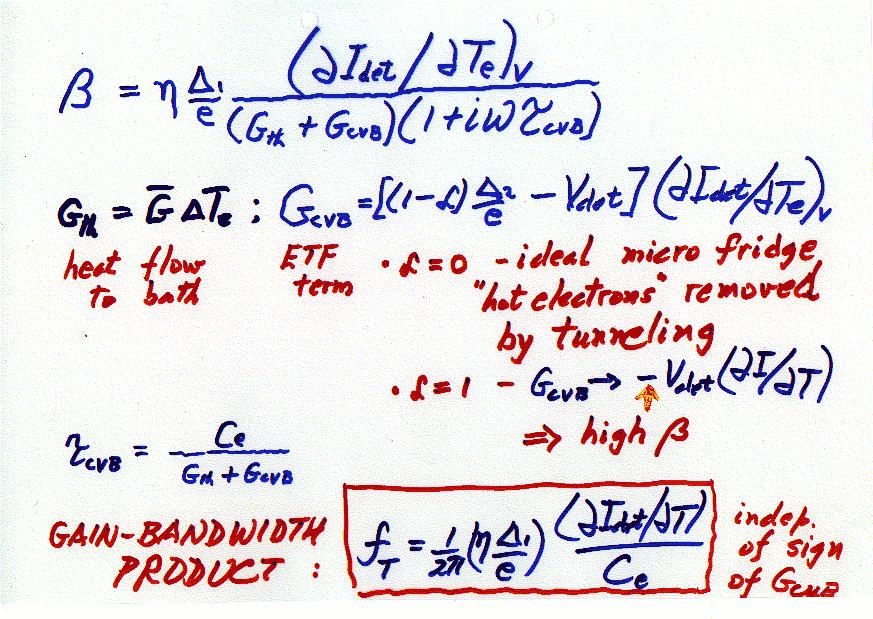 β = η Δ₁/e (∂I_det/∂T_e)_V / (G_th + G_CVB)(1+iωτ_CVB)
G_th = G̅ ΔT_e ; G_CVB = [(1-f) Δ₂/e - V_det] (∂I_det/∂T_e)_V
heat flow to bath
ETF term
• f = 0 - ideal micro fridge,
"hot electrons" removed
by tunneling
• f = 1 - G_CVB → - V_det (∂I/∂T)
⇒ high β
τ_CVB = C_e / G_th + G_CVB
GAIN-BANDWIDTH
PRODUCT :
f_T = 1/2π (η Δ₁/e) (∂I_det/∂T) / C_e
indep.
of sign
of G_CVB